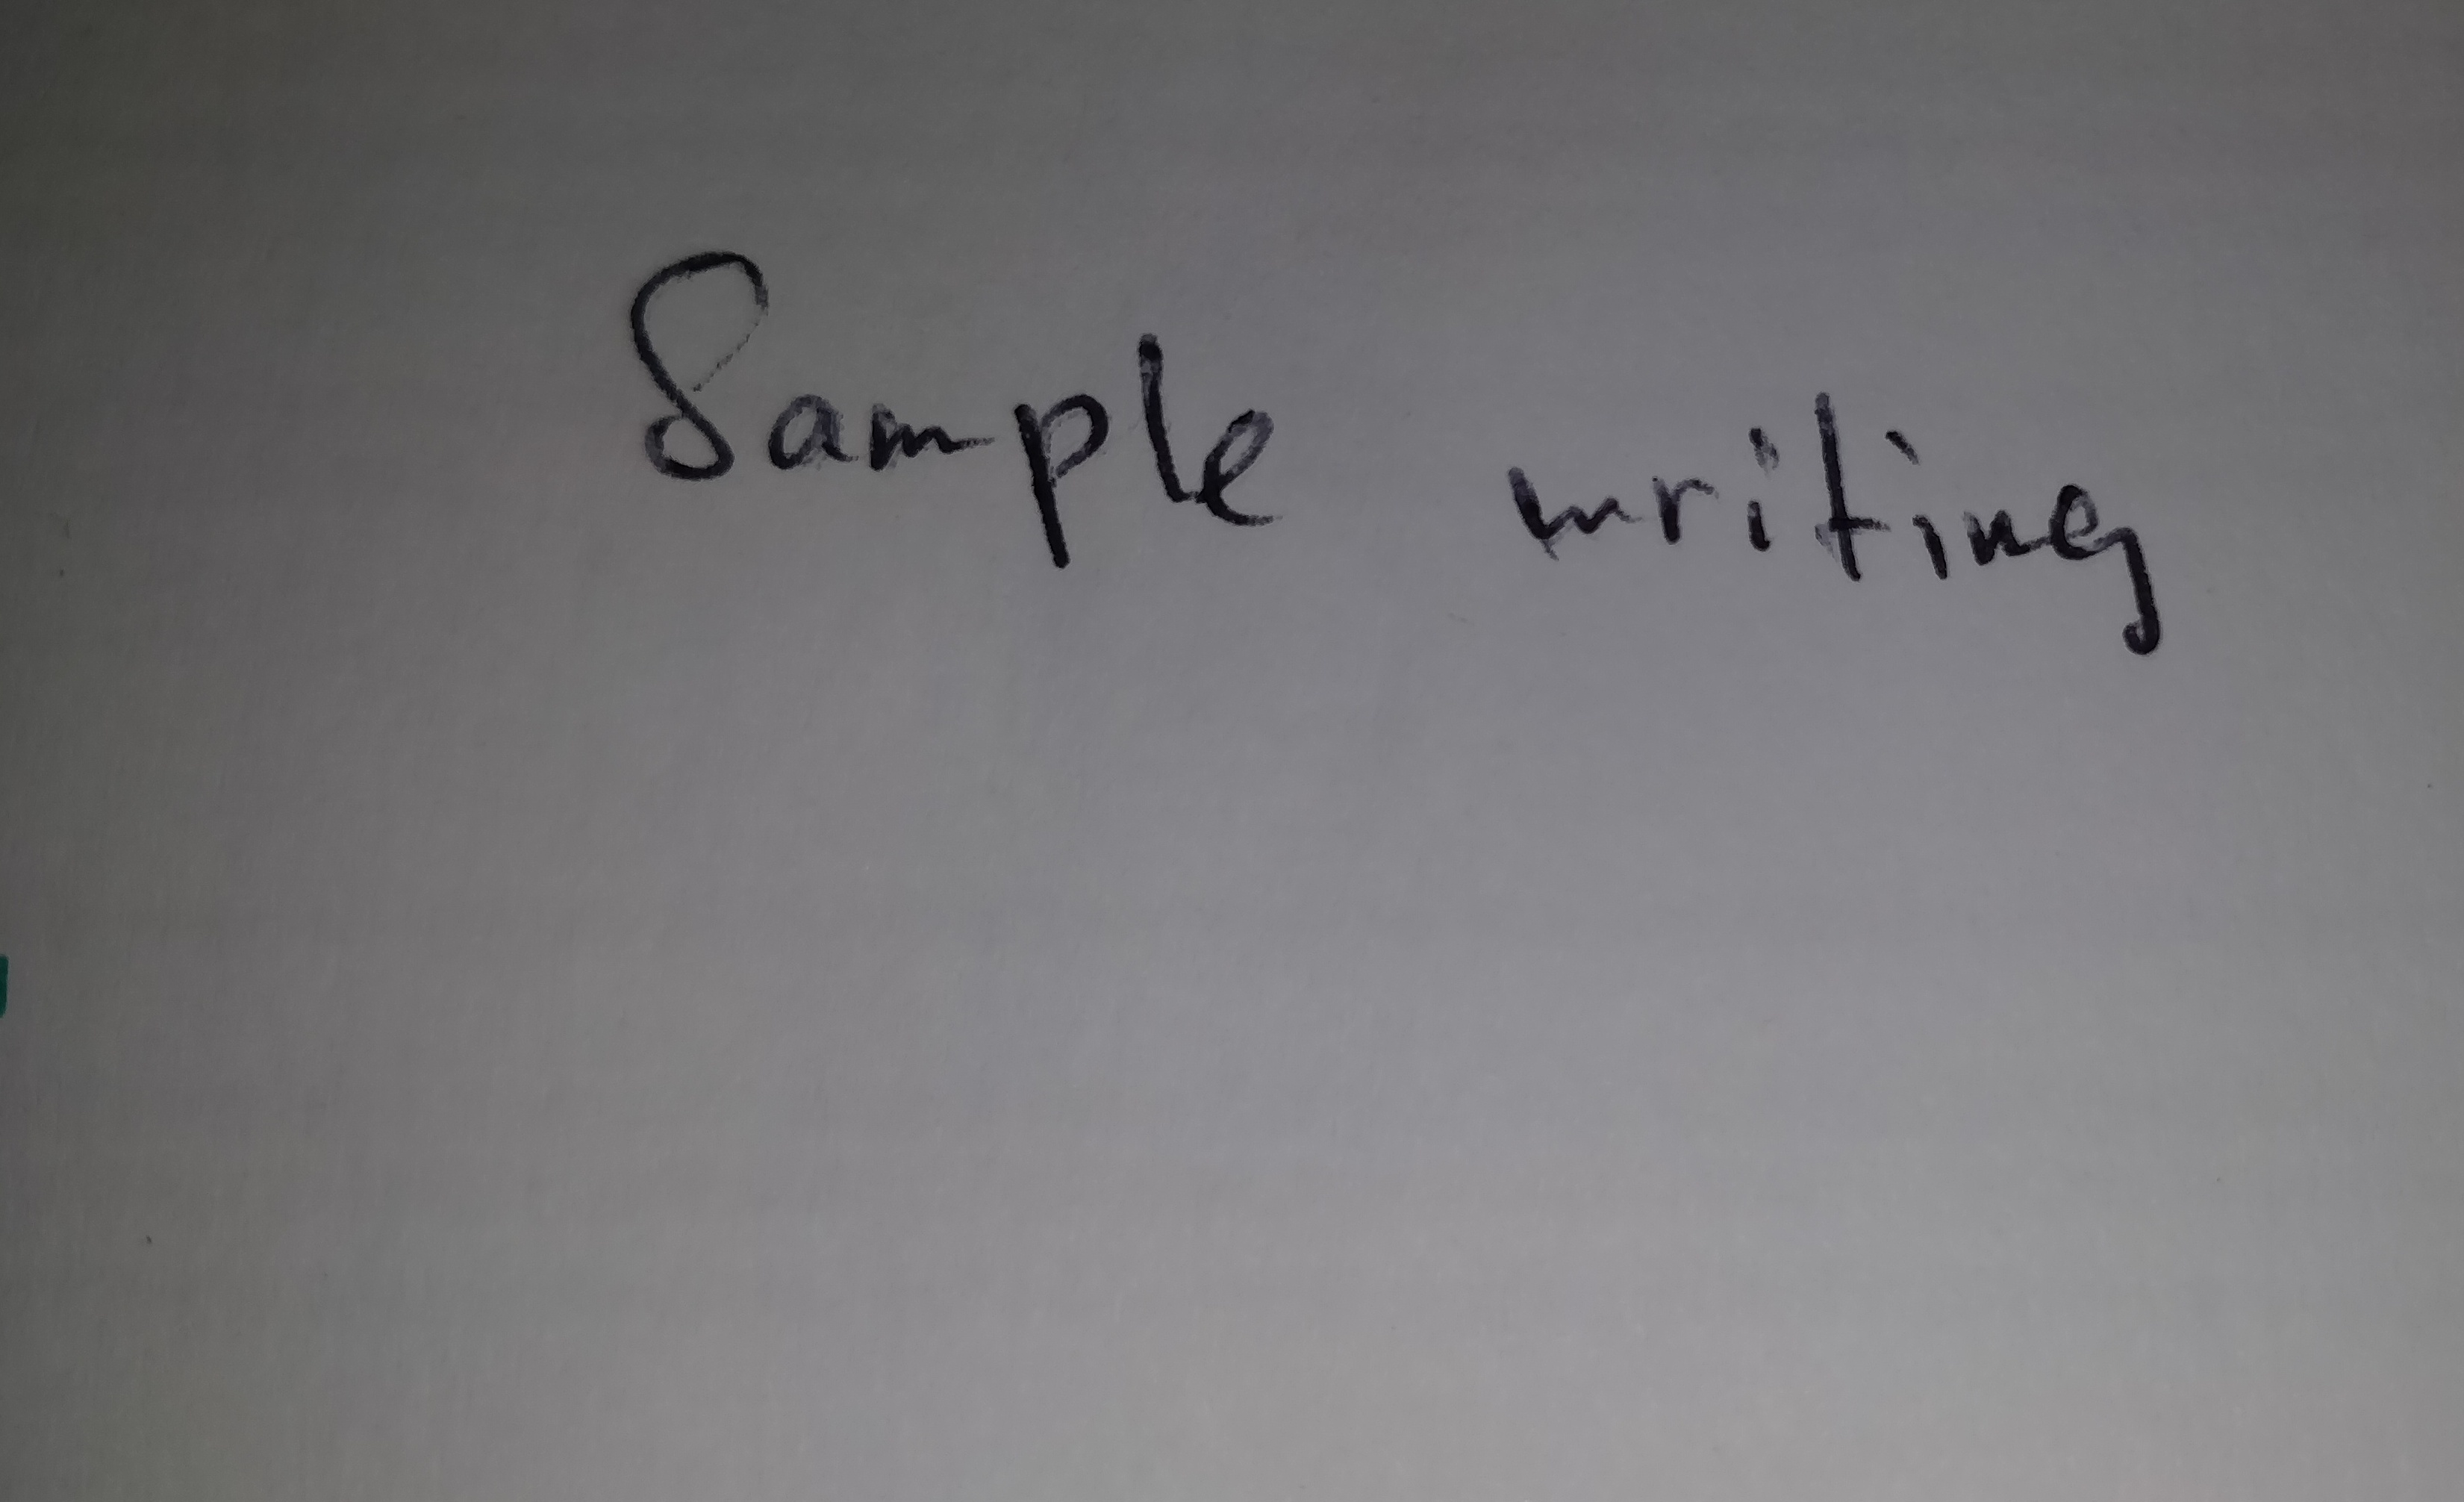 Sample writing